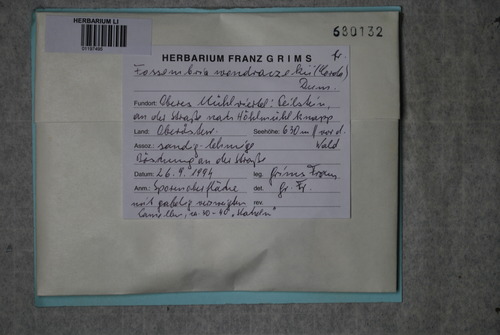 HERBARIUM LI
01197450
630132
HERBARIUM FRANZ GRIMS fr.
Fossombronia wondraczekii (Corda)
Dum.
Fundort: Oberes Mühlviertel:
an der Straße nach
Land: Oberösterr. Seehöhe: 630 m
Assoz.: sandig-lehmige Wald
Böschung an der Straße
Datum: 26.9.1994 leg. Grims Franz
Anm.: Sporenoberfläche det. Gr. Fr.
mit gabelig verzweigten rev.
Lamellen, ca 30-40